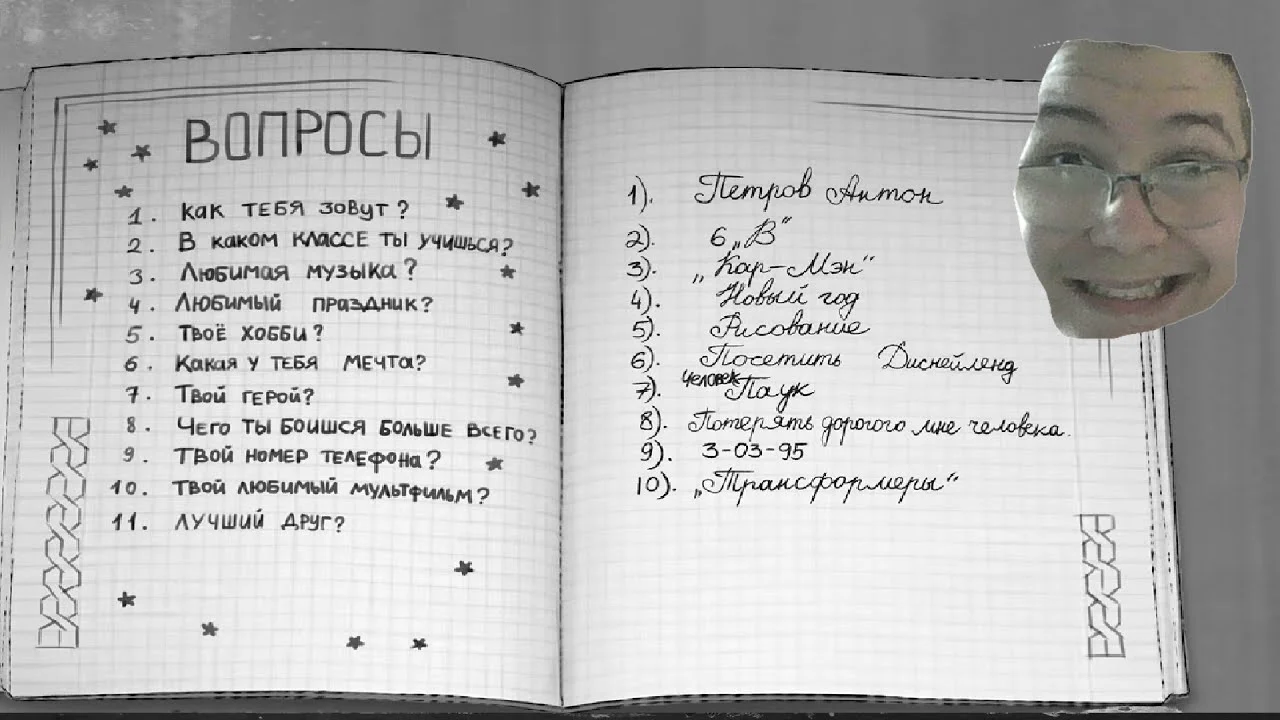 ВОПРОСЫ
1. Как тебя зовут?
2. В каком классе ты учишься?
3. Любимая музыка?
4. Любимый праздник?
5. Твоё хобби?
6. Какая у тебя мечта?
7. Твой герой?
8. Чего ты боишся больше всего?
9. Твой номер телефона?
10. Твой любимый мультфильм?
11. Лучший друг?
1). Петров Антон
2). 6 „В“
3). „Кар-Мэн“
4). Новый год
5). Рисование
6). Посетить Диснейленд
7). Человек Паук
8). Потерять дорогого мне человека.
9). 3-03-95
10). „Трансформеры“